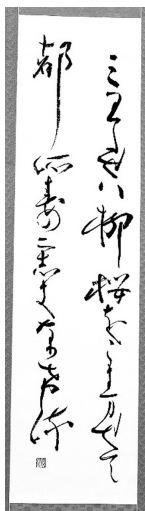 みわたせは柳桜をこきませて
都そ春のにしきなりける